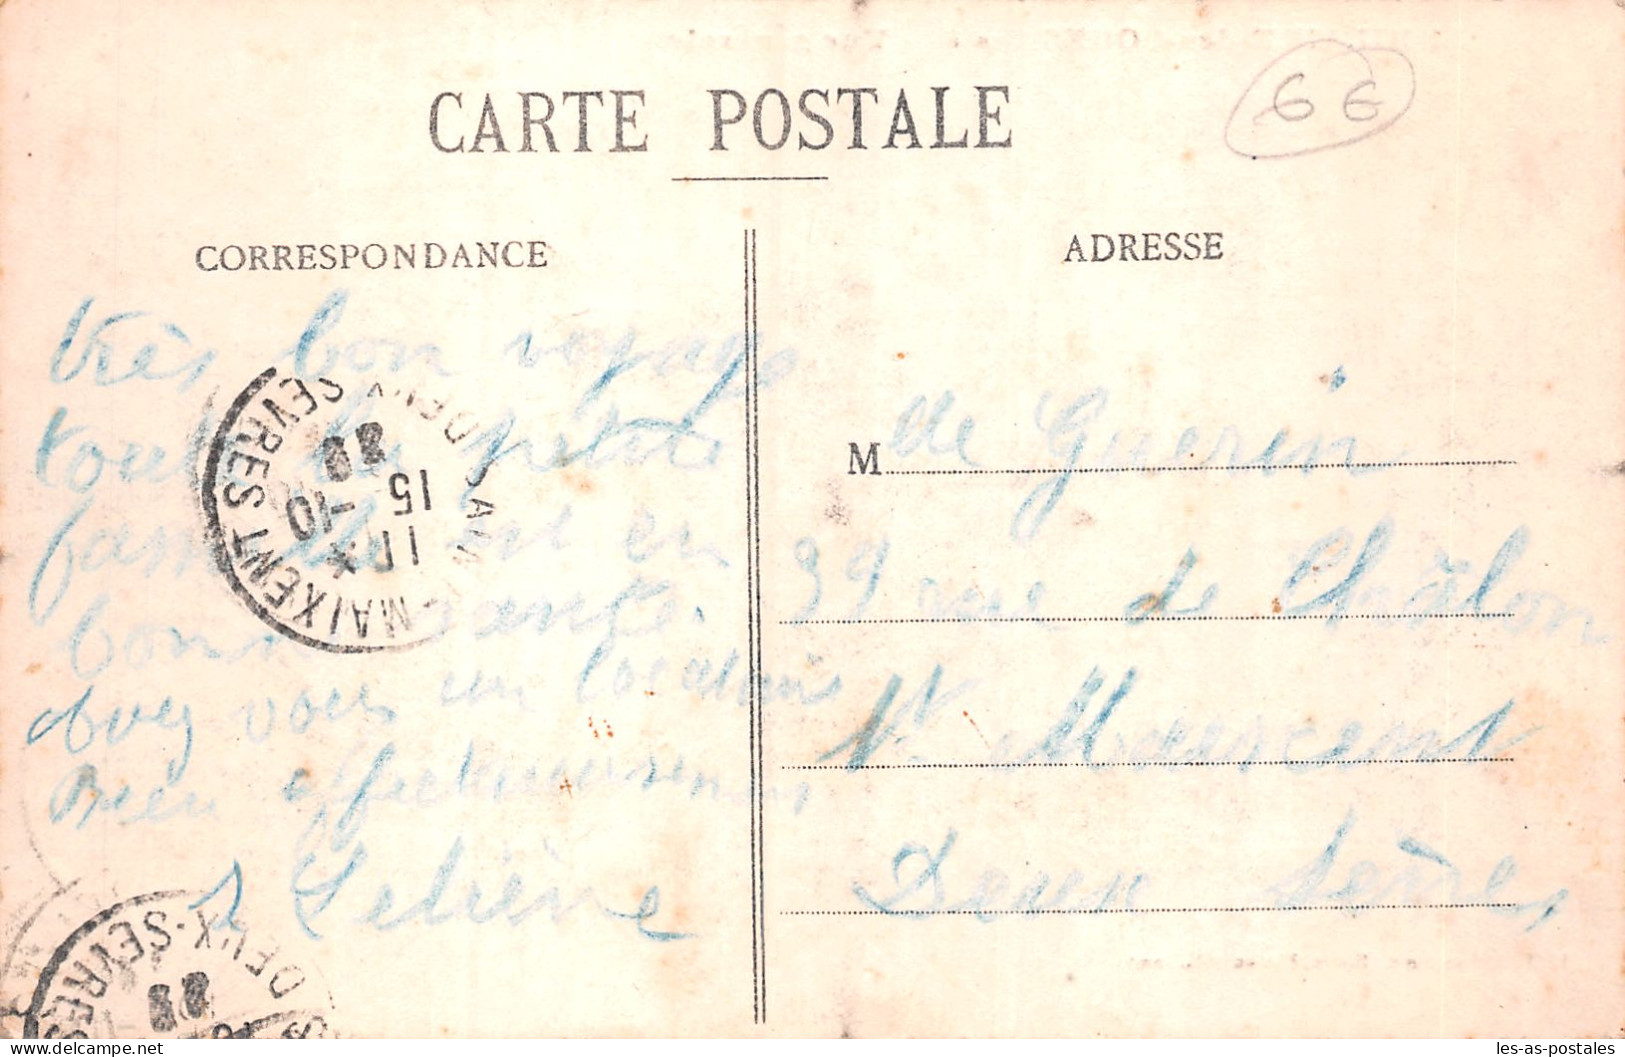 CARTE POSTALE
6 €
CORRESPONDANCE
ADRESSE
très bon voyage
toute la petite
famille est en
bonne santé.
avez vous un locataire
Bien affectueusement
M de Guerin
99 rue de Châlon
St Maixent
Deux Sèvres
MAIXENT
DEUX-SEVRES
15 -10
DEUX-SEVRES
les-as-postales